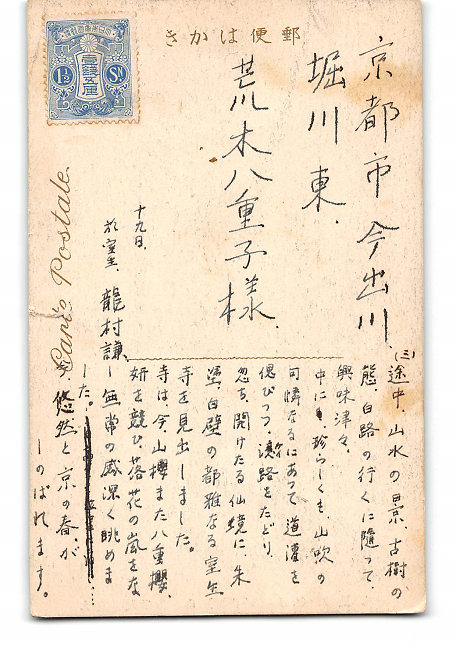 きかは便郵
京都市今出川
堀川東、
荒木八重子様
Carte Postale.
1½ Sn
十九日、
於室生、龍村謙
(三)途中、山水の景、古樹の
態、白路の行くに随って、
興味津々、
中にも、珍らしくも山吹の
可憐なるにあって道灌を
偲びつつ、淡路をたどり、
忽ち、開けたる仙境に、朱
塗白壁の都雅なる室生
寺を見出しました。
寺は今、山櫻また八重櫻、
妍を競ひ、落花の嵐をな
し無常の感深く眺めま
した。
悠然と京の春、が
しのばれます。